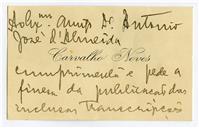 Amº Dr. Antonio
José d'Almeida
Carvalho Neves
cumprimenta e pede a
fineza da publicação das
inclusas transcripções